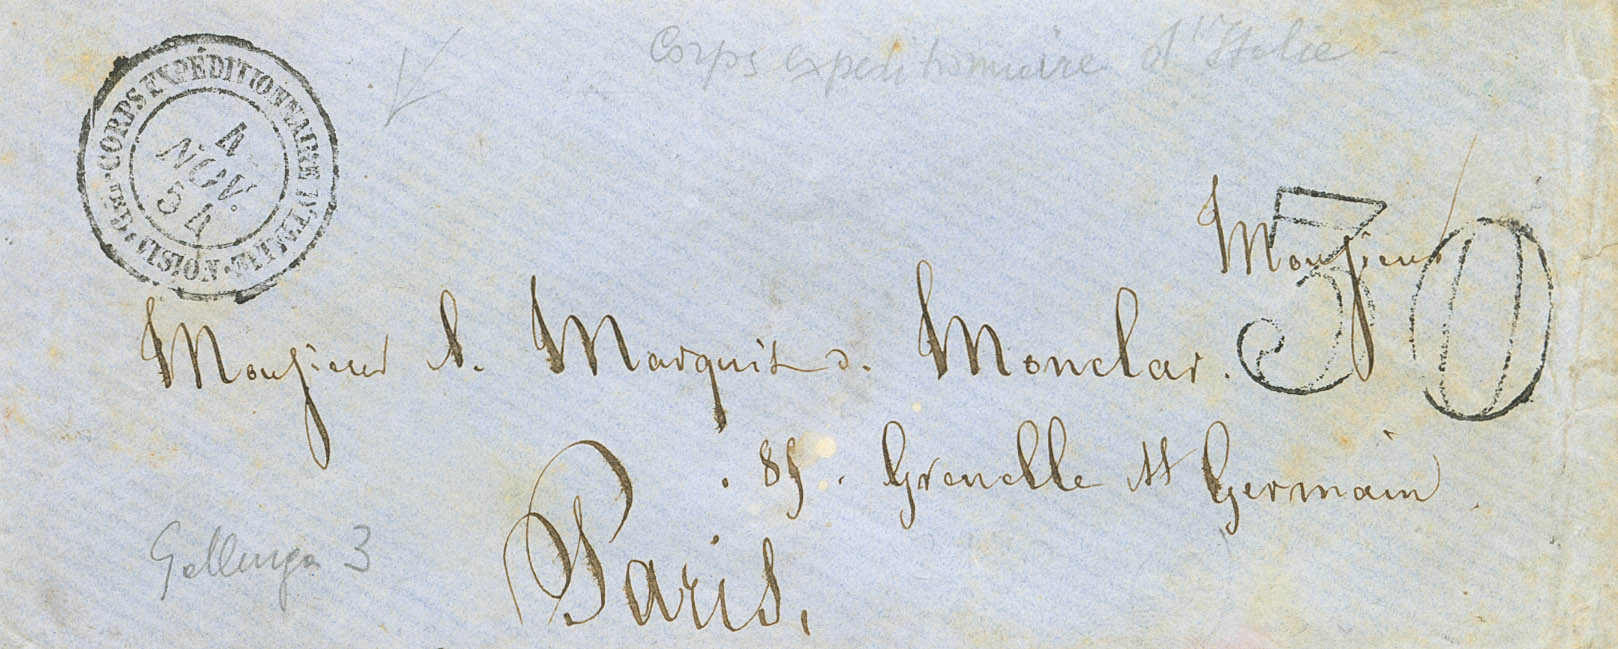 Corps expeditionnaire d'Italie
CORPS EXPÉDITIONNAIRE D'ITALIE
4
NOV.
54
30
Monsieur
Monsieur L. Marquis d. Monclar.
Grenelle St Germain
Paris.
3